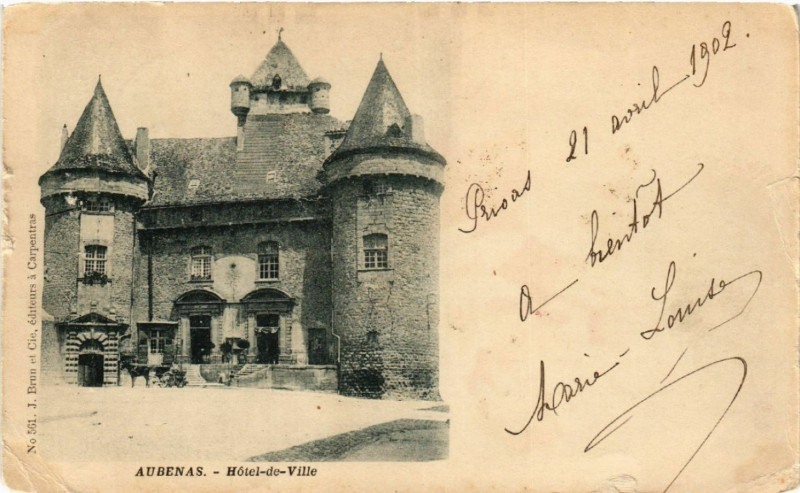 No 561. J. Brun et Cie, éditeurs à Carpentras
AUBENAS. - Hôtel-de-Ville
Privas 21 avril 1902.
à bientôt
Marie-Louise